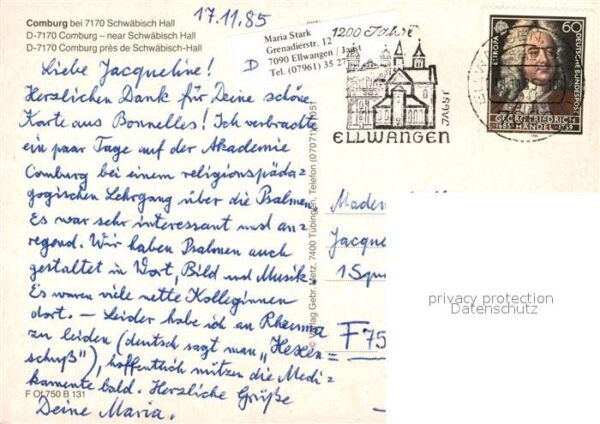 Comburg bei 7170 Schwäbisch Hall
D-7170 Comburg – near Schwäbisch Hall
D-7170 Comburg près de Schwäbisch-Hall
17.11.85
Maria Stark
Grenadierstr. 12
7090 Ellwangen / Jagst
Tel. (07961) 35 27
Liebe Jacqueline! D
Herzlichen Dank für Deine schöne
Karte aus Bonnelles! Ich verbrachte
ein paar Tage auf der Akademie
Comburg bei einem religionspäda-
gogischen Lehrgang über die Psalmen.
Es war sehr interessant und an-
regend. Wir haben Psalmen auch
gestaltet in Wort, Bild und Musik.
Es waren viele nette Kolleginnen
dort. – Leider habe ich an Rheuma
zu leiden (deutsch sagt man „Hexen=
schuß"), hoffentlich nützen die Medi-
kamente bald. Herzliche Grüße
Deine Maria.
F Of 750 B 131
© Verlag Gebr. Metz, 7400 Tübingen, Telefon (07071)
1200 Jahre
ELLWANGEN
JAGST
EUROPA
60
DEUTSCHE BUNDESPOST
GEORG FRIEDRICH
1685 HÄNDEL 1759
Madem
Jacque
1 Squ
F 75
privacy protection
Datenschutz